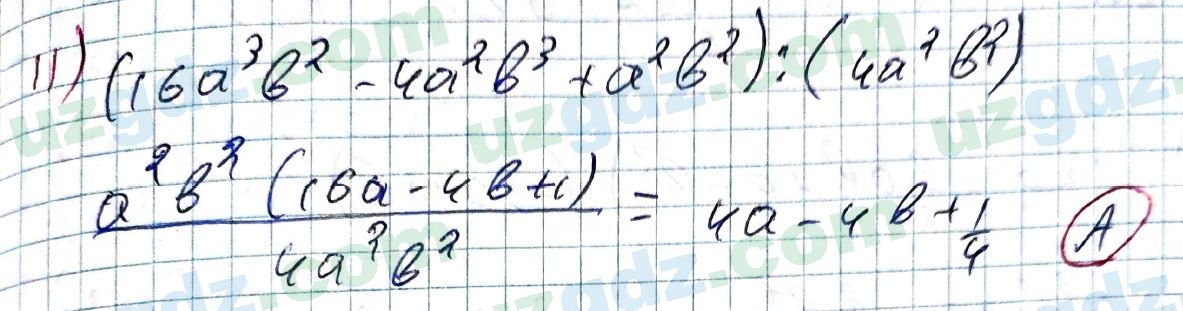 11) (16a³b² - 4a²b³ + a²b²) : (4a²b²)
a²b² (16a - 4b + 1) / 4a²b² = 4a - 4b + 1/4 A
uzgdz.com